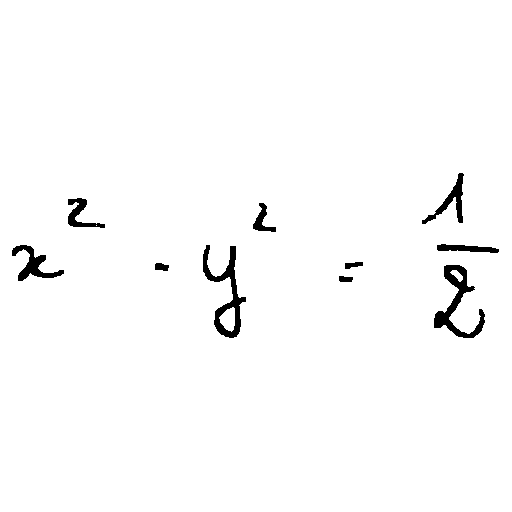 x² - y² = 1/2